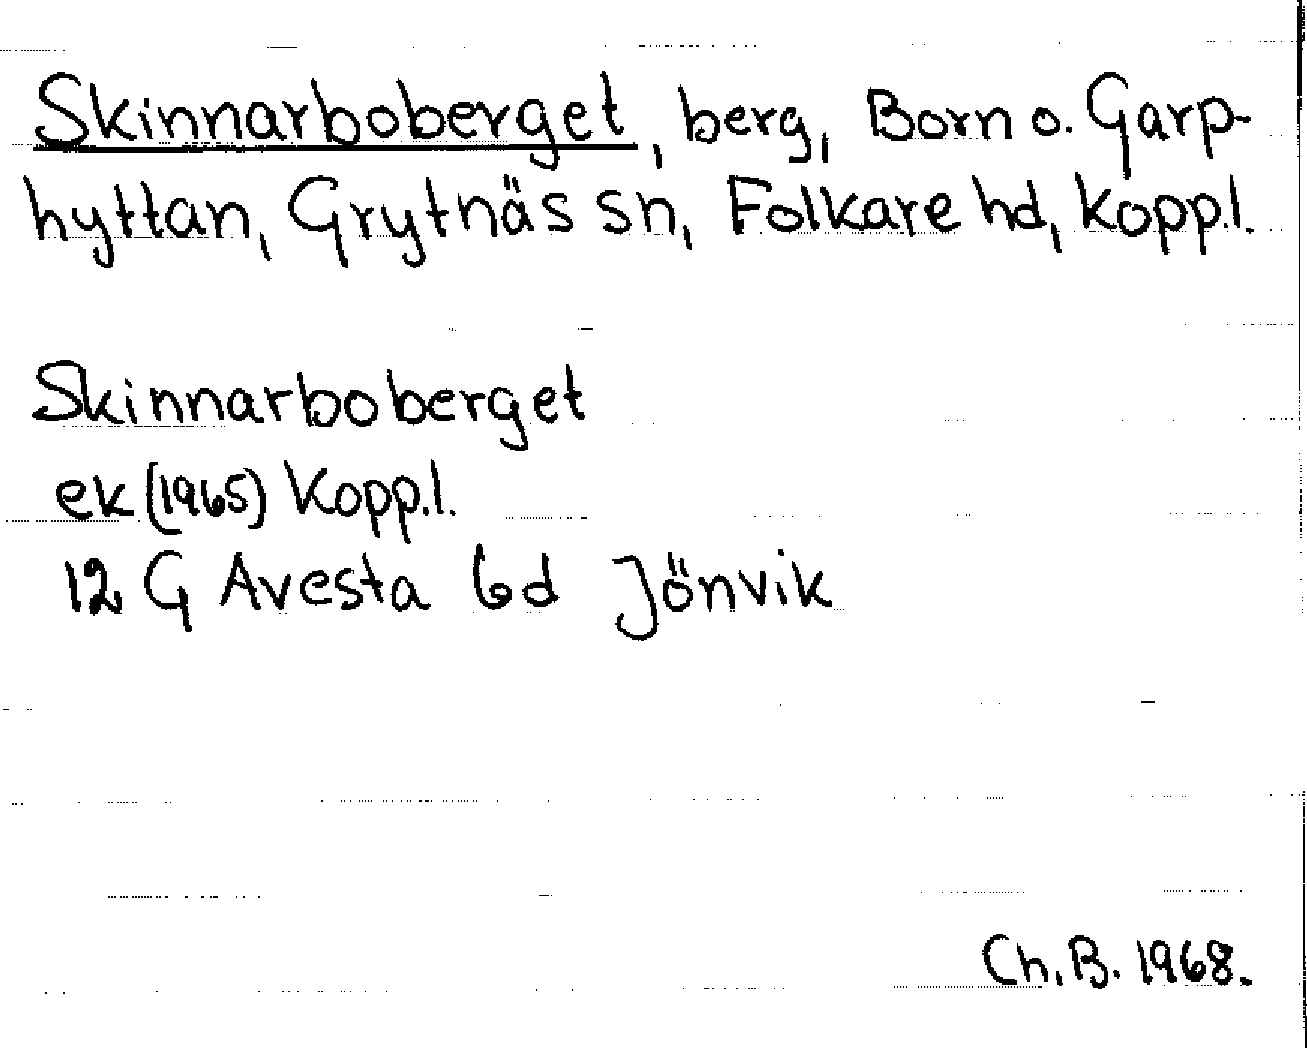 Skinnarboberget, berg, Born o. Garp-
hyttan, Grytnäs sn, Folkare hd, Kopp.l.
Skinnarboberget
ek (1965) Kopp.l.
12 G Avesta 6d Jönvik
Ch. B. 1968.